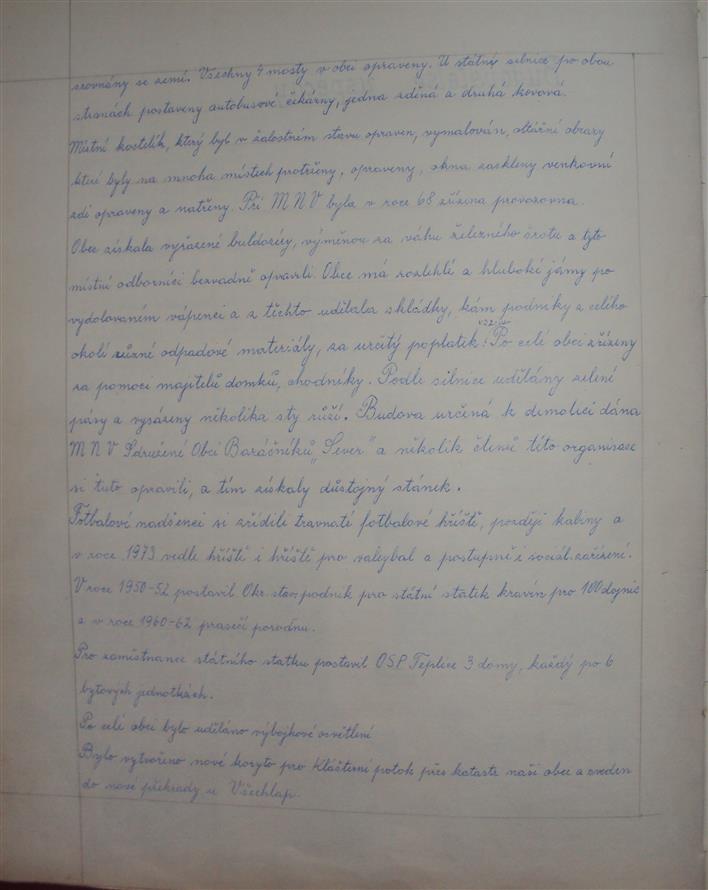 srovnány se zemí. Všechny 4 mosty v obci opraveny. U státní silnice po obou
stranách postaveny autobusové čekárny, jedna zděná a druhá kovová.
Místní kostelík, který byl v žalostném stavu opraven, vymalován, oltářní obrazy
které byly na mnoha místech protrženy, opraveny, okna zasklena venkovní
zdi opraveny a natřeny. Při M N V byla v roce 68 zřízena provozovna.
Obec získala vyřazené buldozéry, výměnou za váhu železného šrotu a tyto
místní odborníci bezvadně opravili. Obec má rozlehlé a hluboké jámy po
vydolovaném vápenci a z těchto udělala skládky, kam podniky z celého
okolí různé odpadové materiály, za určitý poplatek. vozí Po celé obci zřízeny
za pomoci majitelů domků, chodníky. Podle silnice udělány zelené
pásy a vysázeny několika sty růží. Budova určená k demolici dána
M N V Sdružení Obcí Baráčníků „Sever" a několik členů této organisace
si tuto opravili, a tím získaly důstojný stánek.
Fotbaloví nadšenci si zřídili travnaté fotbalové hřiště, později kabiny a
v roce 1973 vedle hřiště i hřiště pro valeybal a postupně i sociál. zařízení.
V roce 1950-52 postavil Okr. stav. podnik pro státní statek kravín pro 100 dojnic
a v roce 1960-62 prasečí porodnu.
Pro zaměstnance státního statku postavil OSP Teplice 3 domy, každý po 6
bytových jednotkách.
Po celé obci bylo uděláno výbojkové osvětlení
Bylo vytvořeno nové koryto pro Klášterní potok přes katastr naší obce a sveden
do nové překrady u Všechlap.